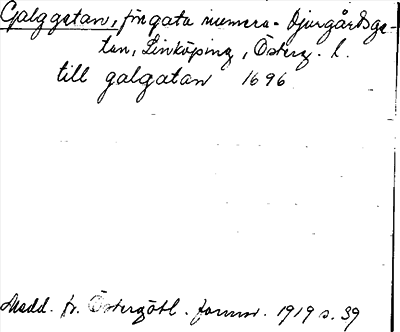 Galggatan, förgata numera Djurgårdsga-
tan, Linköping, Österg. l.
till galgatan 1696
Medd. fr. Östergötl. fornm. 1919 s. 39